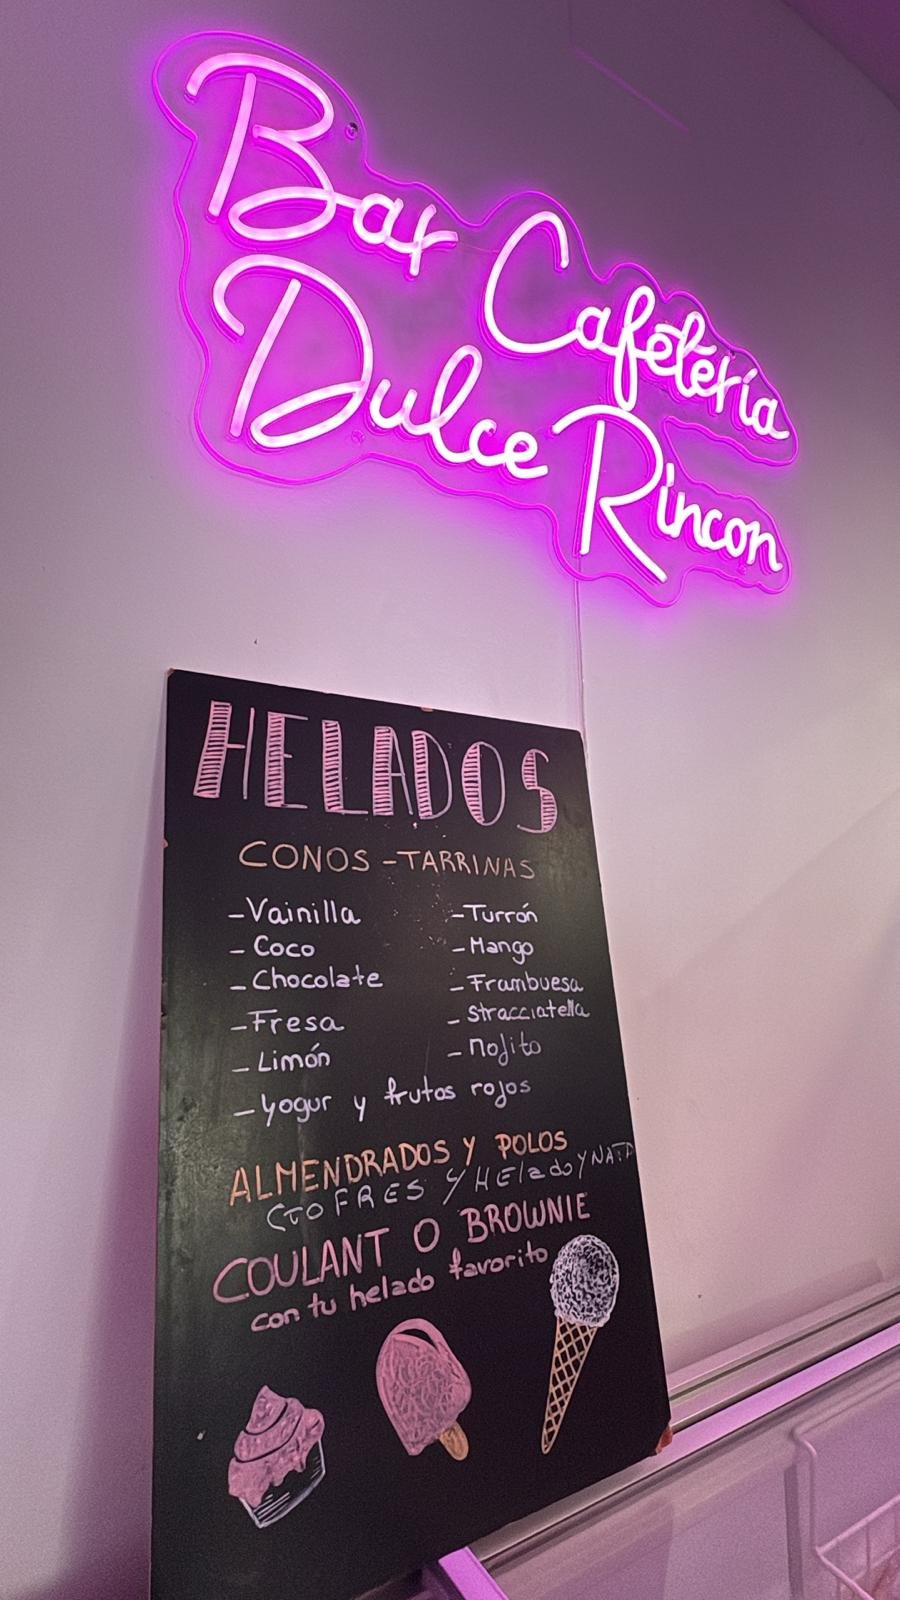 Bar Cafetería
Dulce Rincon
HELADOS
CONOS - TARRINAS
- Vainilla
- Coco
- Chocolate
- Fresa
- Limón
- Turrón
- Mango
- Frambuesa
- Stracciatella
- Mojito
- Yogur y frutos rojos
ALMENDRADOS Y POLOS
Y HELado Y NATA
COULANT O BROWNIE
con tu helado favorito